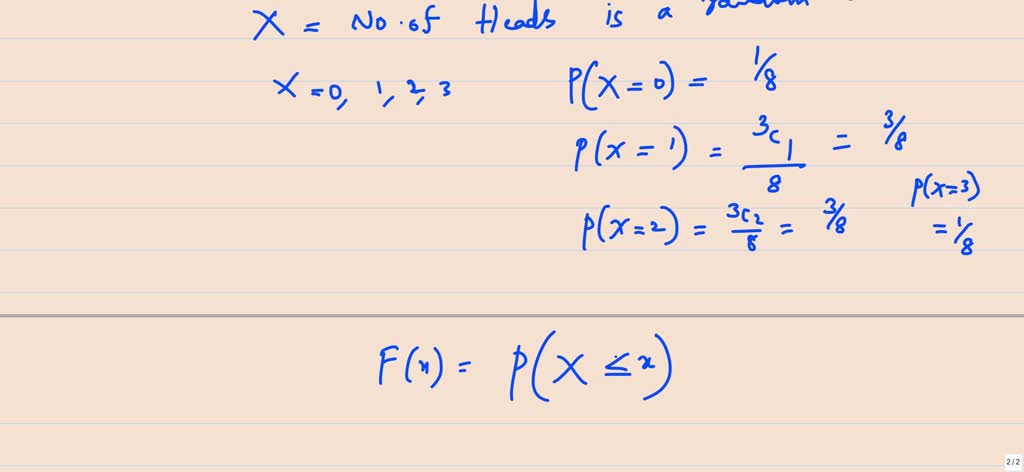 X = No. of Heads is a random
X = 0, 1, 2, 3
P(X = 0) = 1/8
P(X = 1) = 3c1/8 = 3/8
P(X = 2) = 3c2/8 = 3/8
P(X=3)
= 1/8
F(x) = P(X ≤ x)
2 / 2